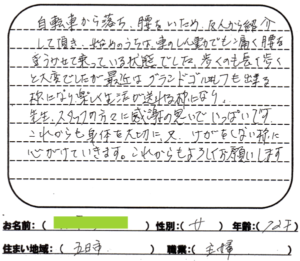 自転車から落ち、腰をいため、友人から紹介
して頂き、始めのうちは、車のしん動でもひどく痛く腰を
浮かせて乗っている状態でした。歩くのも長く歩く
と大変でしたが最近はグランドゴルフも出来る
様になり楽しく生活が送れる様になり、
先生、スタッフの方々に感謝の思いでいっぱいです
これからも身体を大切に、又、けがをしない様に
心がけていきます。これからもよろしくお願いします
お名前：（　　　）性別：（女）年齢：（72才）
住まい地域：（五日市　）職業：（主婦　）